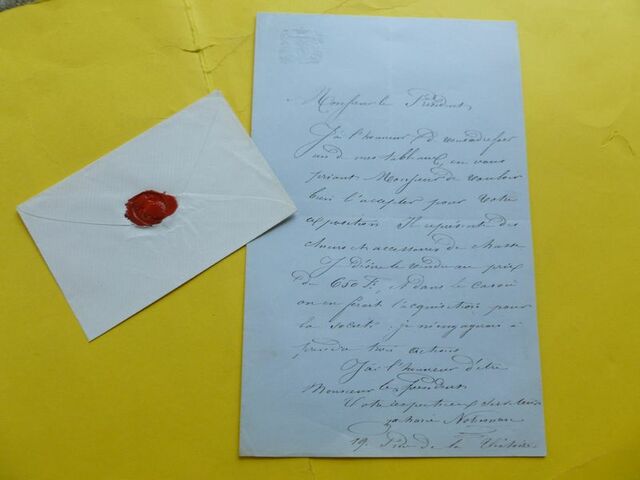 Monsieur le Président,
J'ai l'honneur d vous adresser
un de mes tableaux, en vous
priant Monsieur de vouloir
bien l'accepter pour votre
exposition Il représente des
chiens et accessoires de chasse
Je désire le vendre au prix
de 650 F. et dans le cas où
on en ferait l'acquisition pour
la société je m'engagerais à
prendre trois actions
J'ai l'honneur d'être
Monsieur le Président
Votre respectueux serviteur
Zacharie
19. Rue de la Victoire